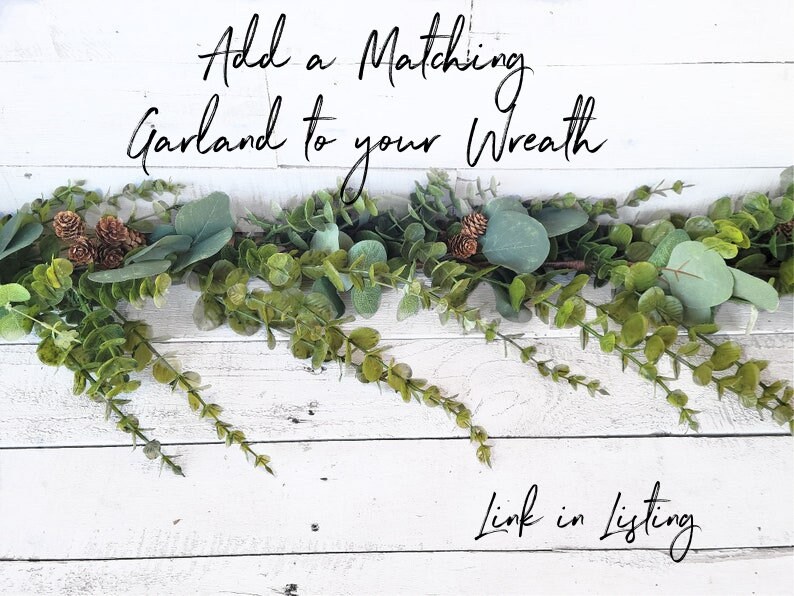 Add a Matching
Garland to your Wreath
Link in Listing